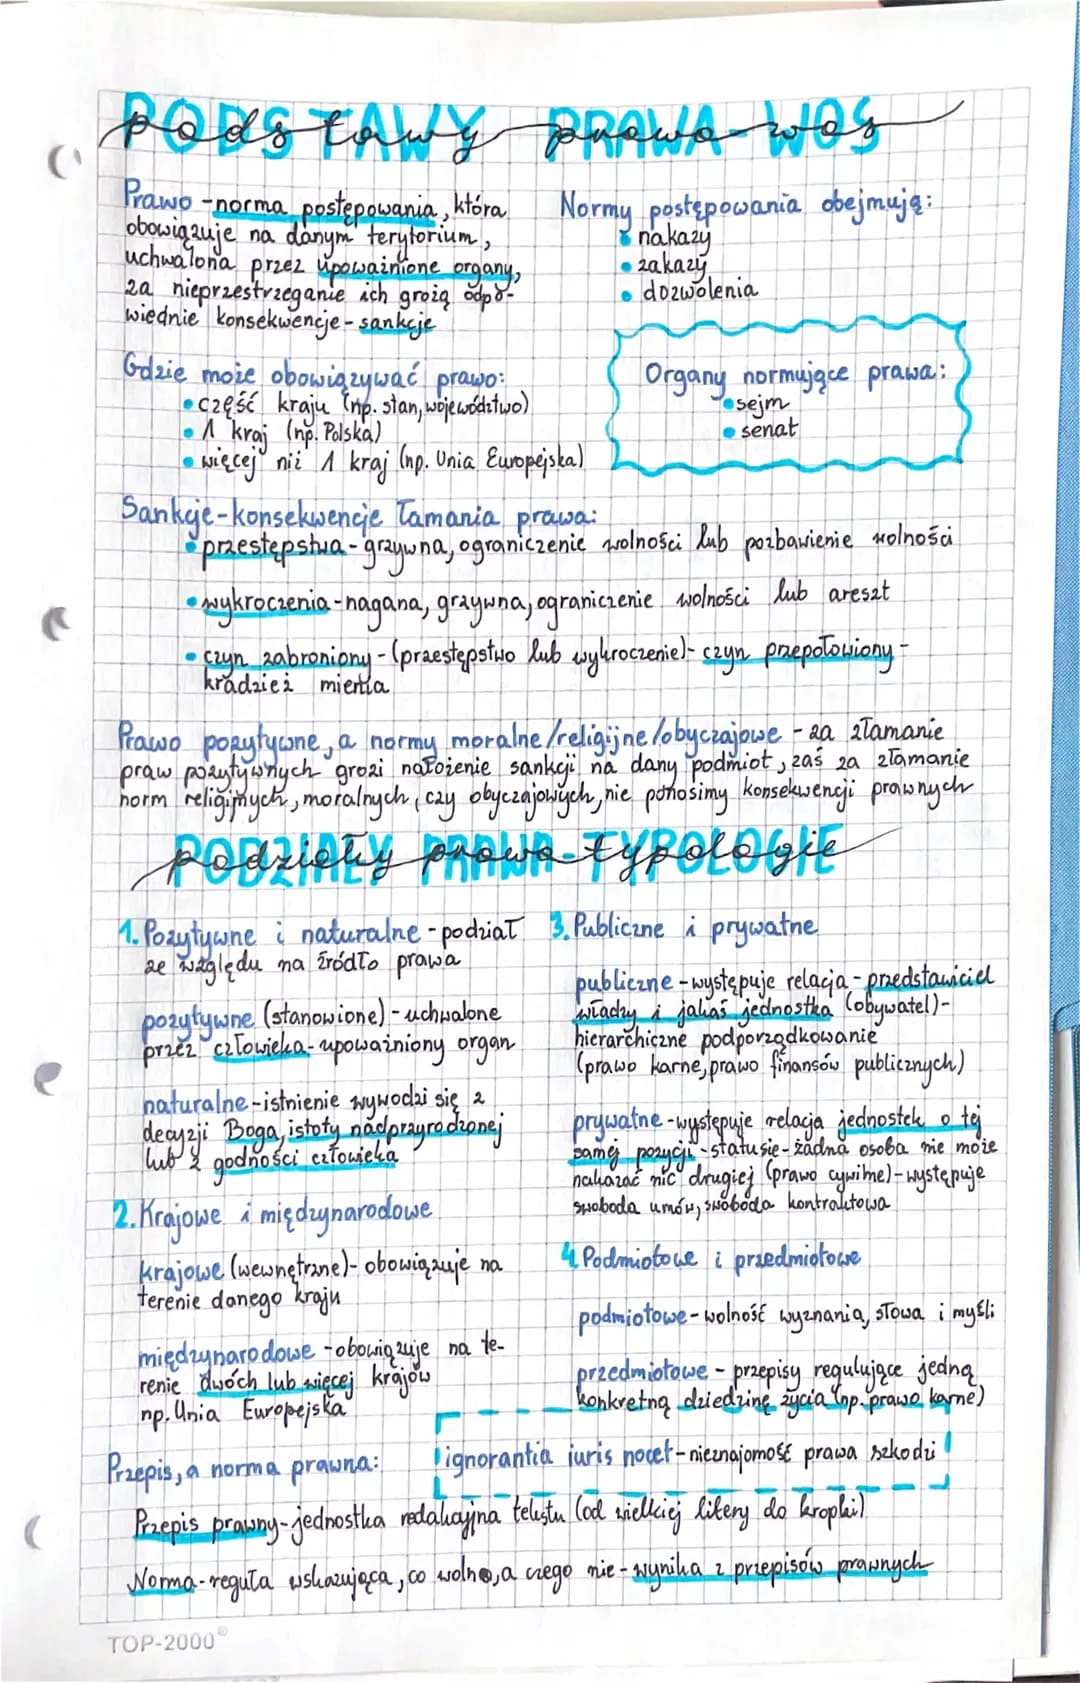 PODSTAWY PRAWA - WOS
Prawo - norma postępowania, która
obowiązuje na danym terytorium,
uchwalona przez upoważnione organy,
za nieprzestrzeganie ich grożą odpo-
wiednie konsekwencje - sankcje
Normy postępowania obejmują:
• nakazy
• zakazy
• dozwolenia
Gdzie może obowiązywać prawo:
• część kraju (np. stan, województwo)
• 1 kraj (np. Polska)
• więcej niż 1 kraj (np. Unia Europejska)
Organy normujące prawa:
• sejm
• senat
Sankcje - konsekwencje łamania prawa:
• przestępstwa - grzywna, ograniczenie wolności lub pozbawienie wolności
• wykroczenia - nagana, grzywna, ograniczenie wolności lub areszt
• czyn zabroniony - (przestępstwo lub wykroczenie) - czyn przepołowiony -
kradzież mienia
Prawo pozytywne, a normy moralne/religijne/obyczajowe - za złamanie
praw pozytywnych grozi nałożenie sankcji na dany podmiot, zaś za złamanie
norm religijnych, moralnych, czy obyczajowych, nie ponosimy konsekwencji prawnych
PODZIAŁY PRAWA - TYPOLOGIE
1. Pozytywne i naturalne - podział
ze względu na źródło prawa
pozytywne (stanowione) - uchwalone
przez człowieka - upoważniony organ
naturalne - istnienie wywodzi się z
decyzji Boga, istoty nadprzyrodzonej
lub z godności człowieka
2. Krajowe i międzynarodowe
krajowe (wewnętrzne) - obowiązuje na
terenie danego kraju
międzynarodowe - obowiązuje na te-
renie dwóch lub więcej krajów
np. Unia Europejska
3. Publiczne i prywatne
publiczne - występuje relacja - przedstawiciel
władzy i jakaś jednostka (obywatel) -
hierarchiczne podporządkowanie
(prawo karne, prawo finansów publicznych)
prywatne - występuje relacja jednostek o tej
samej pozycji - statusie - żadna osoba nie może
nakazać nic drugiej (prawo cywilne) - występuje
swoboda umów, swoboda kontraktowa
4. Podmiotowe i przedmiotowe
podmiotowe - wolność wyznania, słowa i myśli
przedmiotowe - przepisy regulujące jedną
konkretną dziedzinę życia (np. prawo karne)
Przepis, a norma prawna:
! ignorantia iuris nocet - nieznajomość prawa szkodzi !
Przepis prawny - jednostka redakcyjna tekstu (od wielkiej litery do kropki)
Norma - reguła wskazująca, co wolno, a czego nie - wynika z przepisów prawnych
TOP-2000®